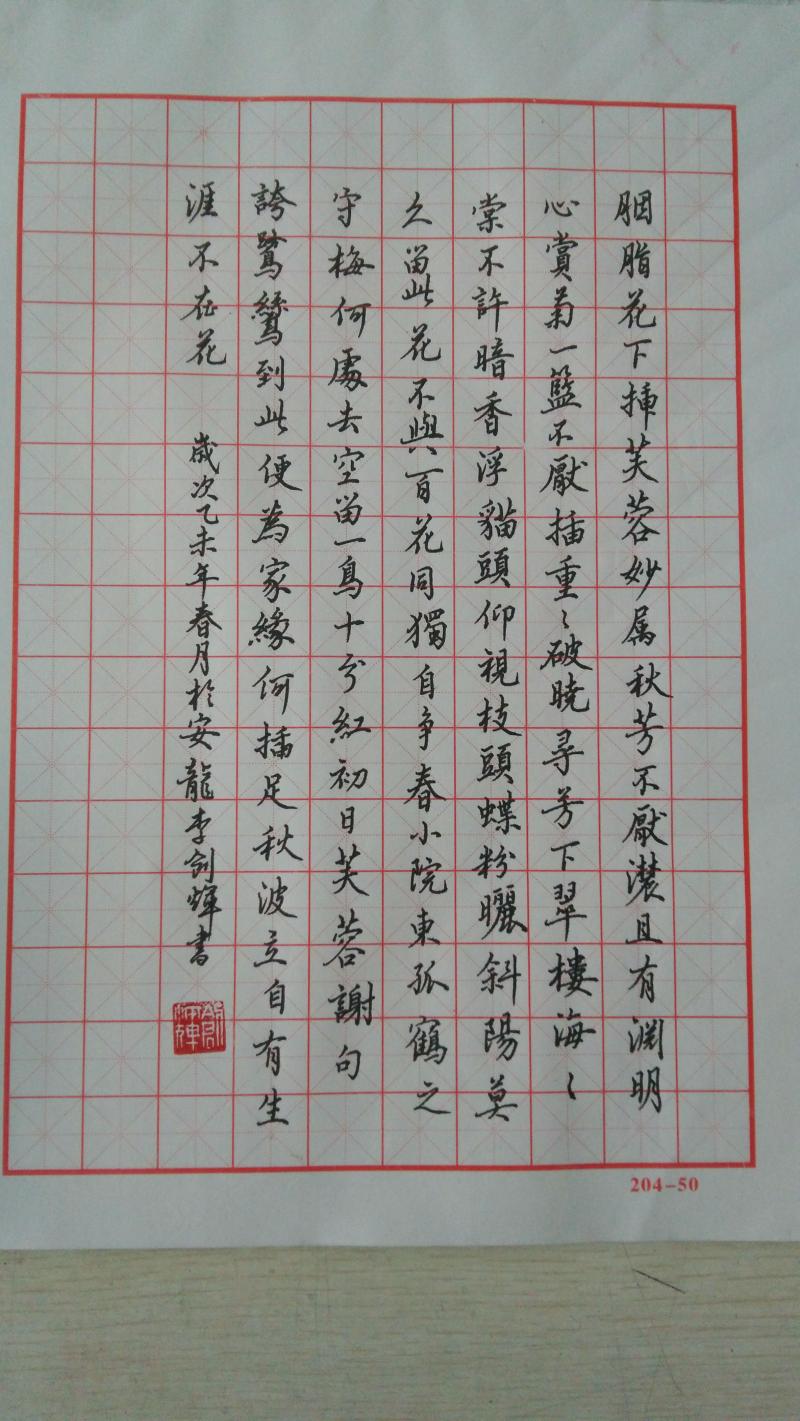 胭脂花下插芙蓉妙属秋芳不厭濃且有淵明
心賞菊一籃不厭插重〻破曉尋芳下翠樓海〻
棠不許暗香浮貓頭仰視枝頭蝶粉曬斜陽莫
久留此花不與百花同獨自爭春小院東孤鶴之
守梅何處去空留一鳥十分紅初日芙蓉謝句
誇鴛鴦到此便為家緣何插足秋波立自有生
涯不在花
歲次乙未年春月於安龍李劍輝書
劍輝
204-50